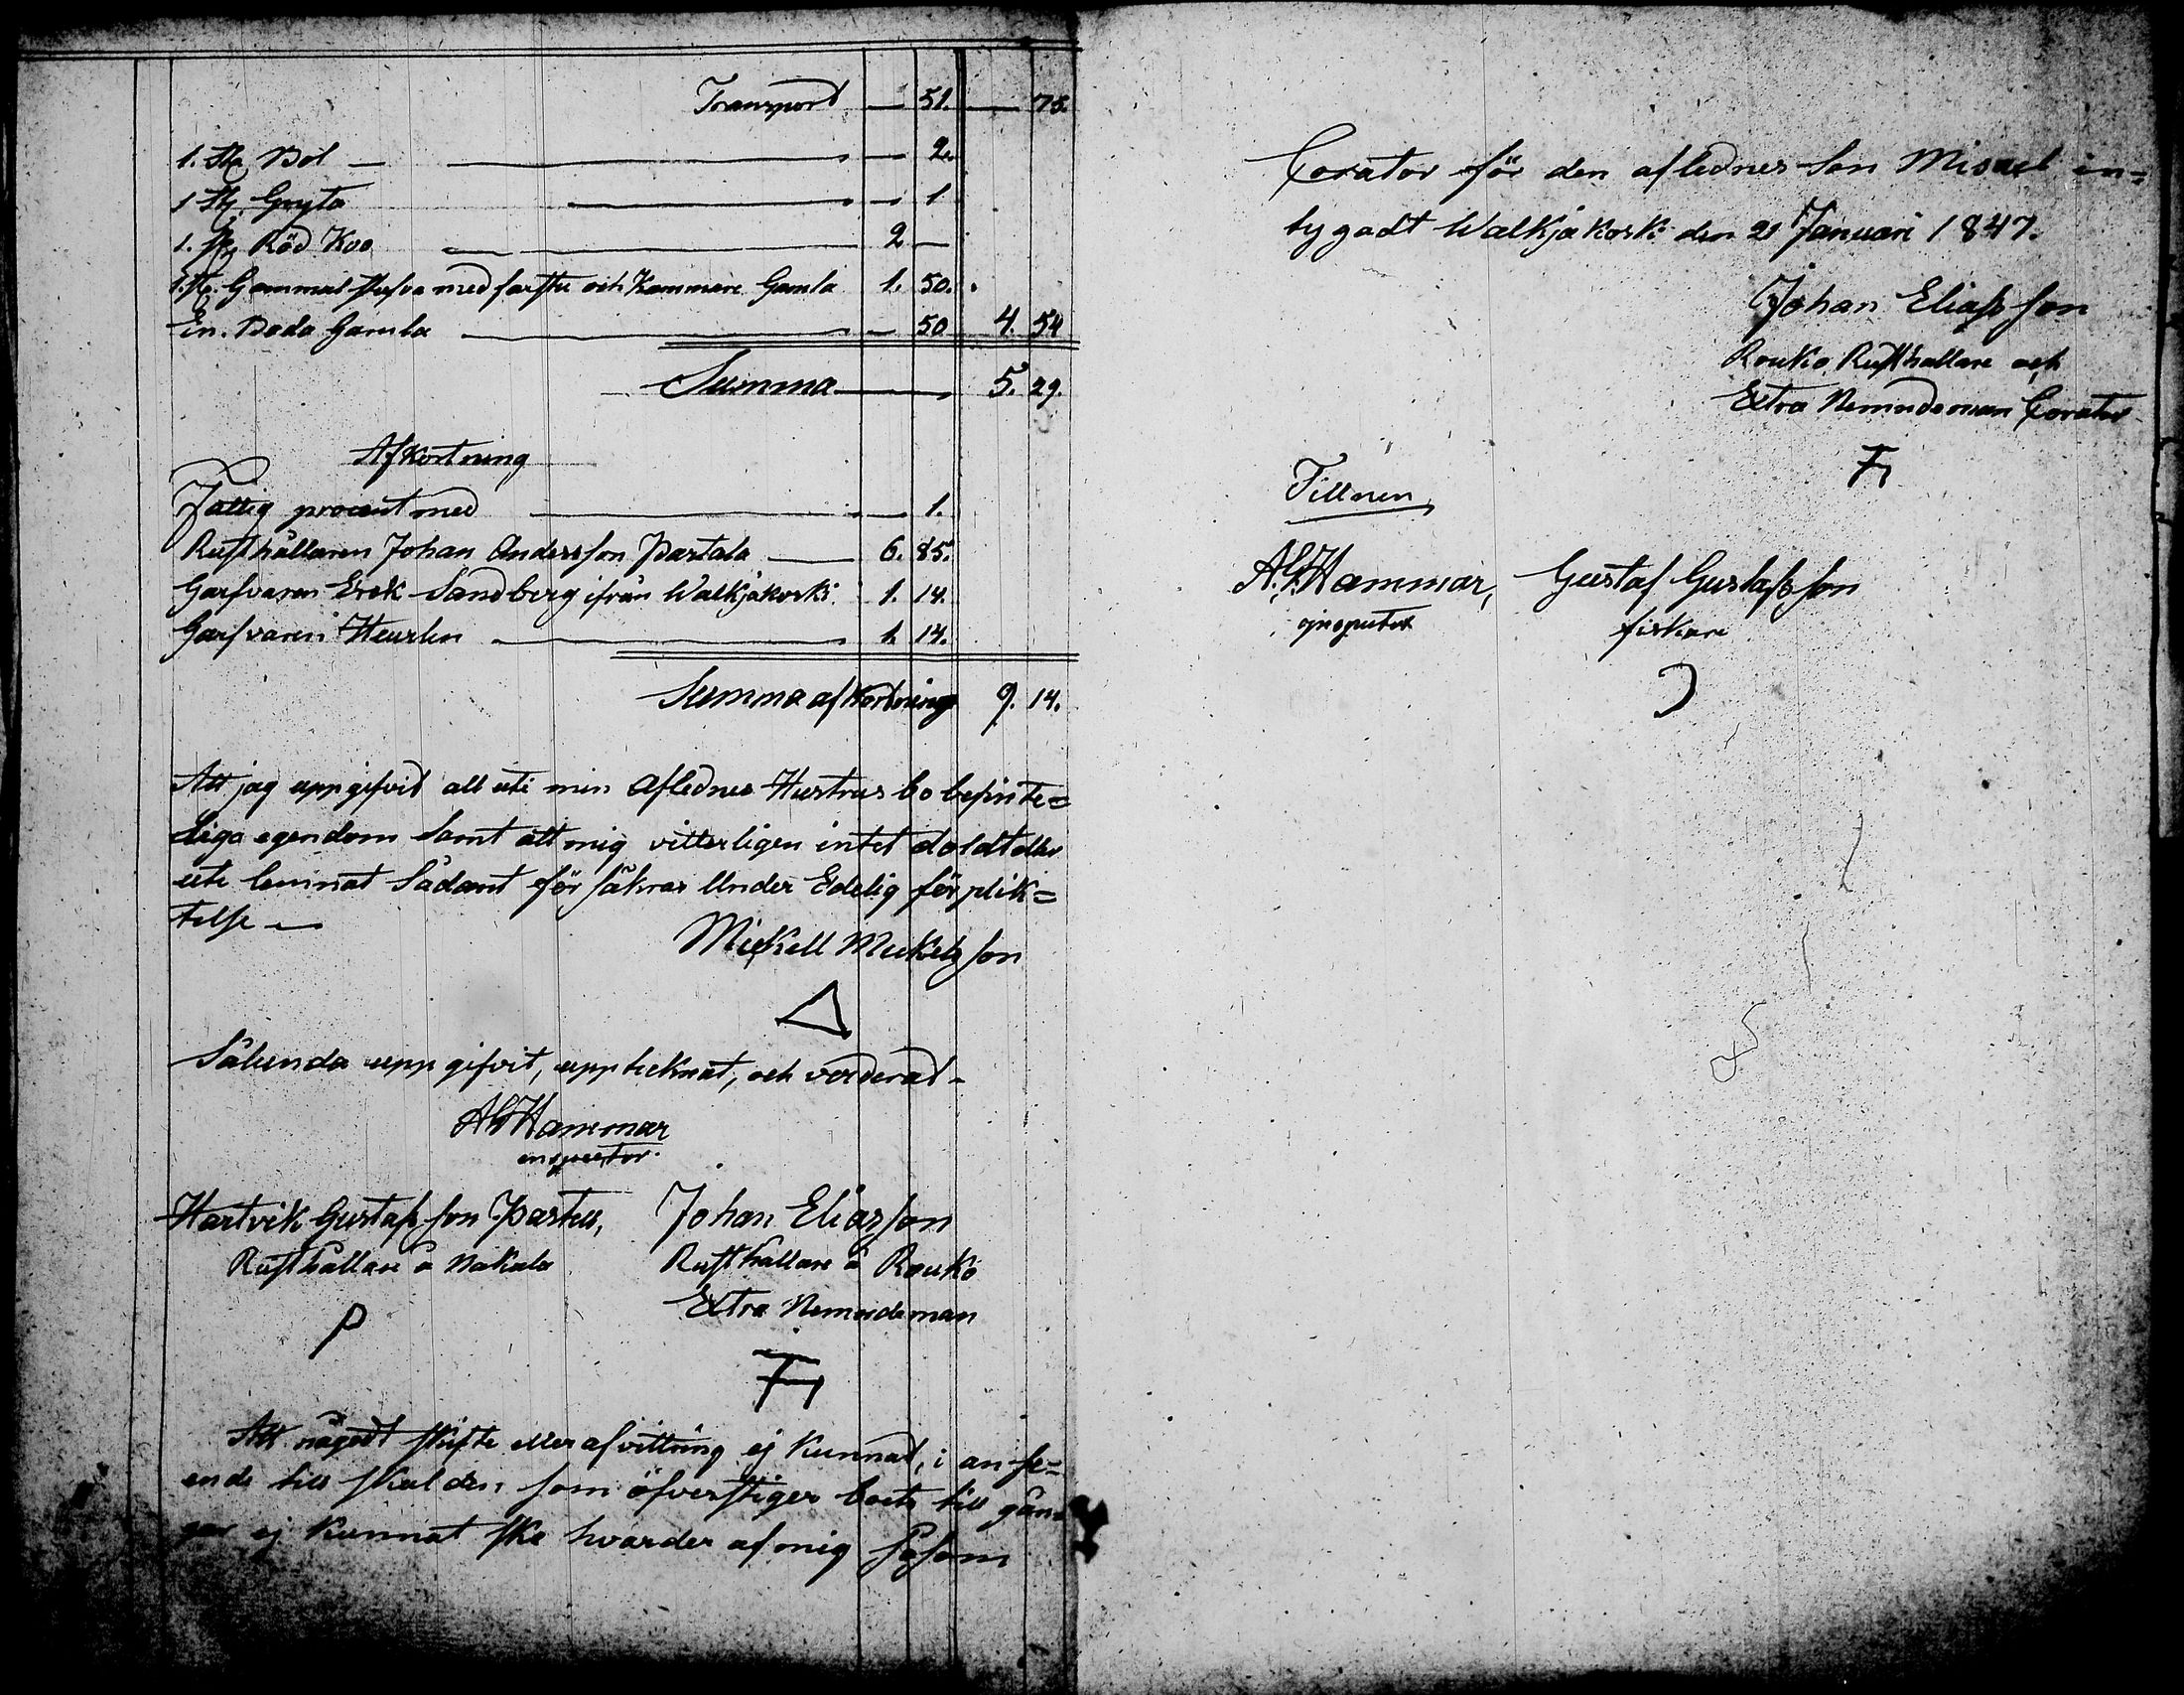 Transport — 51. — 75.
1. St. Bol — — 2.
1 St. Gryta — 1
1. St. Röd Koo 2 —
1. St. Gammal stufva med farstu och Kammare Gamla 1. 50.
En. Bada Gamla — 50 4. 54
Summa 5. 29.
Afkortning
Fattig procent med — 1.
Rusthållaren Johan Andersson Partala 6. 85.
Garfvaren Erek Sandberg ifrån Walkjakorki 1. 14.
Garfvaren Heurlin 1. 14.
Summa afkortning 9. 14.
Att jag uppgifvid all uti min Aflednes Hustrus bo befinte=
liga egendom Samt att mig vitterligen intet doldt eller
ute lemnat Sådant för säkras Under Edelig förplik=
telse —
Mickell Mickelsson
Sålunda uppgifvit, upptecknat, och värderat -
AGHammar
inspector.
Hartvik Gustafsson Partu, Johan Eliasson
Rusthållare å Nakala Rusthållare å Rouko
P Extra Nemndeman
F
Att någodt skifte eller afvittring ej Kunnad, i anse=
ende till skulden som öfverstiger boets till gån=
gar ej Kunnat ske hvarder af mig Såsom
Corator för den aflednes Son Misael in=
tygadt Walkjakoski den 21 Januari 1847.
Johan Eliasson
Rouko Rusthållare och
Extra Nemndeman Corator
F
Tillnen
A.G.Hammar, Gustaf Gustafsson
inspector fiskare